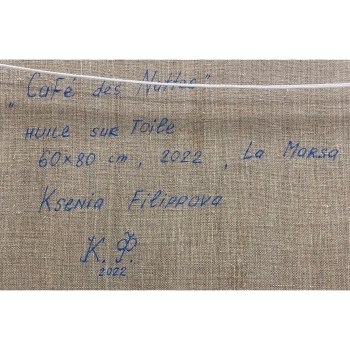 "Café des Nattes"
HUILE SUR TOILE
60x80 cm, 2022, La Marsa
Ksenia Filippova
К. Ф.
2022